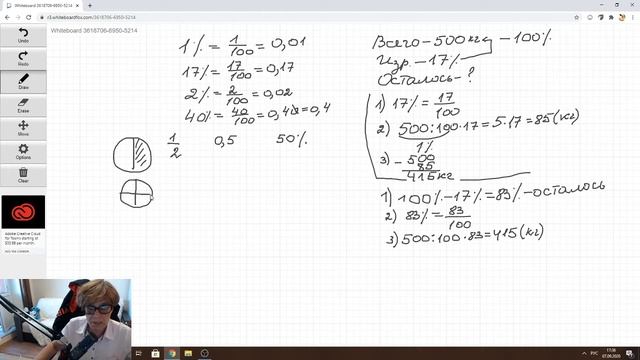 Whiteboard 3618706-6950-5214
r3.whiteboardfox.com/3618706-6950-5214
Whiteboard 3618706-6950-5214
Undo
Redo
Draw
Erase
Move
Options
Close
1% = 1/100 = 0,01
17% = 17/100 = 0,17
2% = 2/100 = 0,02
40% = 40/100 = 0,40 = 0,4
1/2 0,5 50%
Всего – 500 кг – 100%
Изр. – 17%
Осталось - ?
1) 17% = 17/100
2) 500:100·17=5·17=85(кг)
1%
3) - 500
85
415 кг
1) 100%-17%=83% - осталось
2) 83% = 83/100
3) 500:100·83=415(кг)
РУС
17:36
07.09.2020